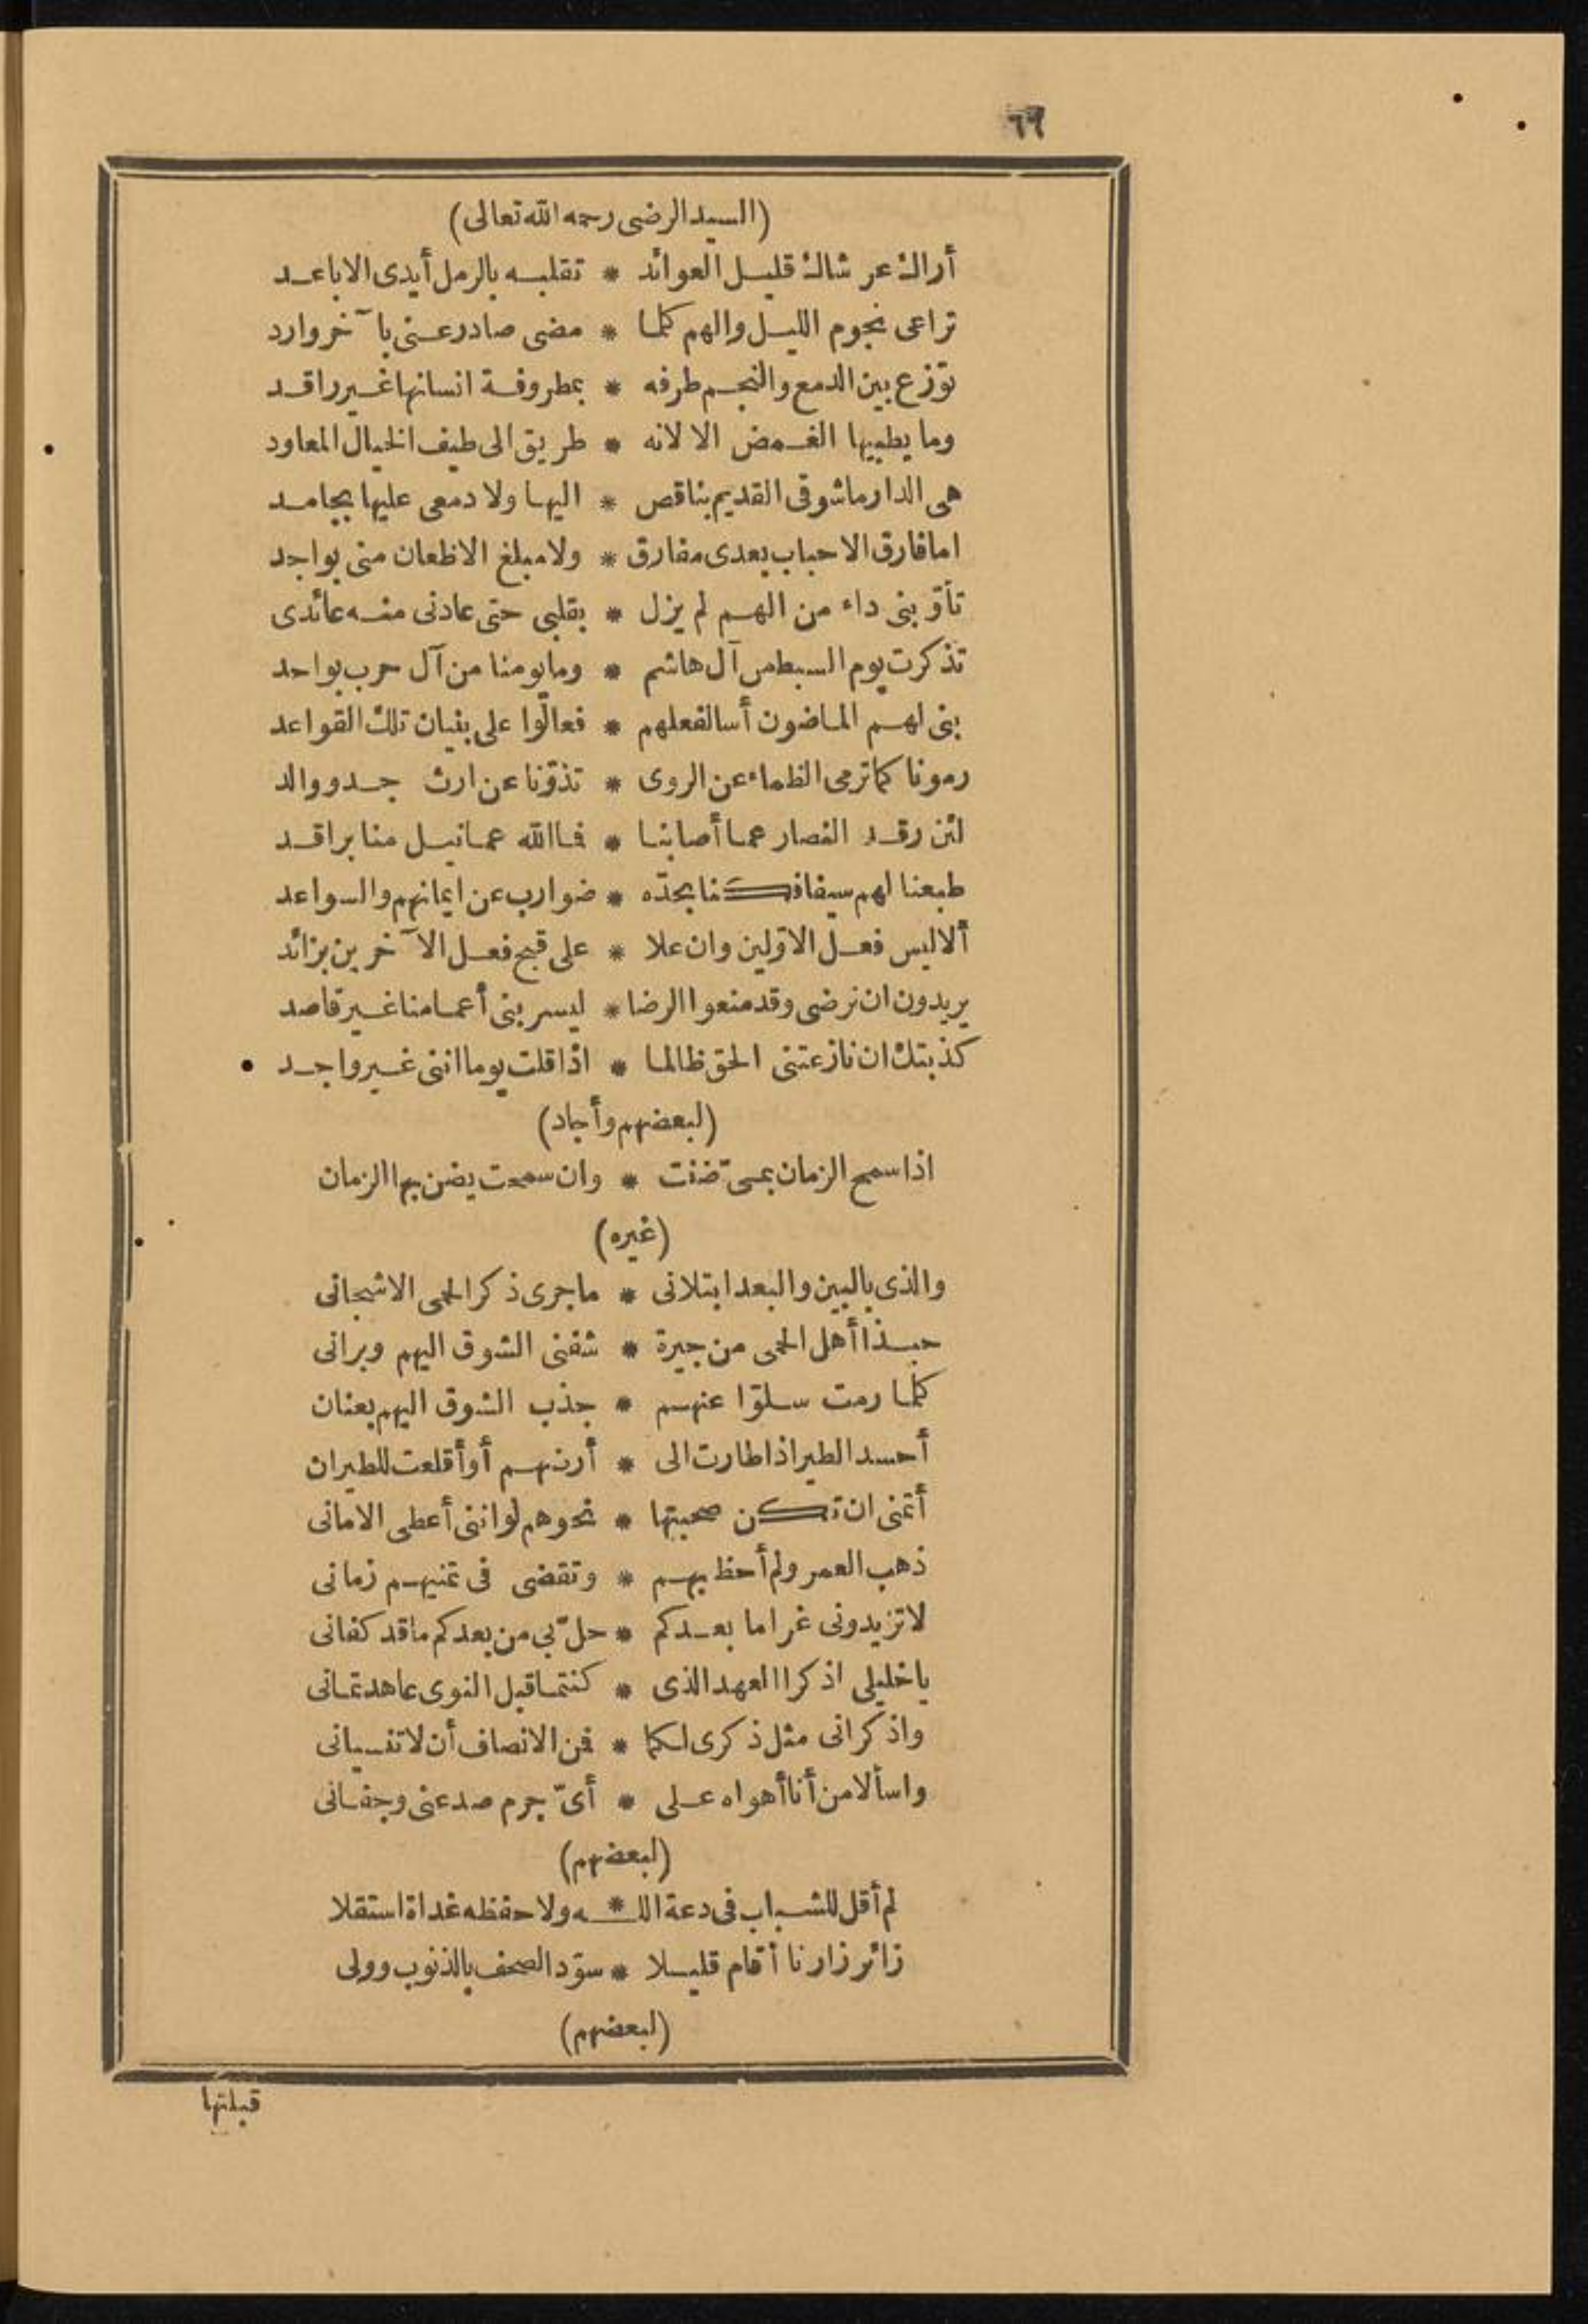 ٦٦
(السيد الرضى رحمه الله تعالى)
أراك عر شاك قليل العوائد * تقلبه بالرمل أيدى الاباعد
تراعى نجوم الليل والهم كلما * مضى صادر عنى بآخر وارد
توزع بين الدمع والنجم طرفه * بمطروفة انسانها غير راقد
وما يطبيها الغمض الا لانه * طريق الى طيف الخيال المعاود
هى الدار ما شوقى القديم بناقص * اليها ولا دمعى عليها بجامد
اما فارق الاحباب بعدى مفارق * ولا مبلغ الاظعان منى بواجد
تأوّبنى داء من الهم لم يزل * بقلبى حتى عادنى منه عائدى
تذكرت يوم السبط من آل هاشم * وما يومنا من آل حرب بواحد
بنى لهم الماضون أسا لفعلهم * فعالوا على بنيان تلك القواعد
رمونا كما ترمى الظماء عن الروى * تذودنا عن ارث جد ووالد
لئن رقد النصار عما أصابنا * فما الله عما نيل منا براقد
طبعنا لهم سيفا فكنا بحدّه * ضوارب عن ايمانهم والسواعد
ألا ليس فعل الاوّلين وان علا * على قبح فعل الآخرين بزائد
يريدون ان نرضى وقد منعوا الرضا * ليسر بنى أعمامنا غير قاصد
كذبتك ان نازعتنى الحق ظالما * اذا قلت يوما اننى غير واجد
(لبعضهم وأجاد)
اذا سمح الزمان بمى ضنت * وان سمحت يضن بها الزمان
(غيره)
والذى بالبين والبعد ابتلانى * ما جرى ذكر الحمى الا شجانى
حبذا أهل الحمى من جيرة * شفنى الشوق اليهم وبرانى
كلما رمت سلوّا عنهم * جذب الشوق اليهم بعنان
أحسد الطير اذا طارت الى * أرضهم أو أقلعت للطيران
أتمنى ان تكن صحبتها * نحوهم لو اننى أعطى الامانى
ذهب العمر ولم أحظ بهم * وتقضى فى تمنيهم زمانى
لا تزيدونى غراما بعدكم * حلّ بى من بعدكم ما قد كفانى
يا خليلى اذكرا العهد الذى * كنتما قبل النوى عاهدتمانى
واذكرانى مثل ذكرى لكما * فمن الانصاف أن لا تنسيانى
واسألا من أنا أهواه على * أىّ جرم صد عنى وجفانى
(لبعضهم)
لم أقل للشباب فى دعة اللـ * ـه ولا حفظه غداة استقلا
زائر زارنا أقام قليلا * سوّد الصحف بالذنوب وولى
(لبعضهم)
قبلتها